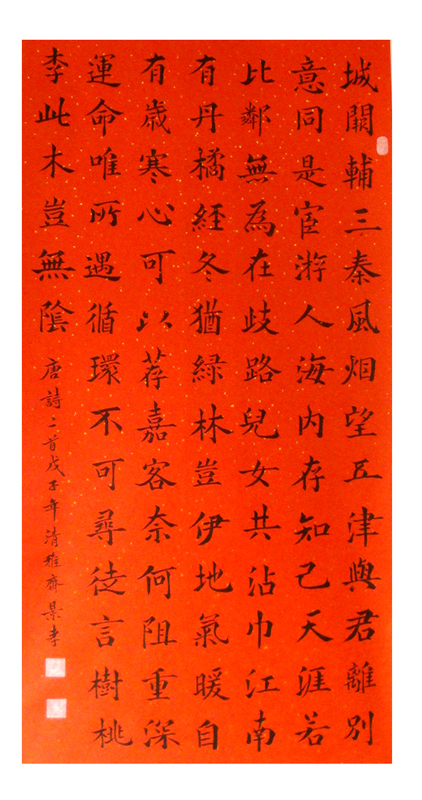 城闕輔三秦風烟望五津與君離別
意同是宦游人海内存知己天涯若
比鄰無為在歧路兒女共沾巾江南
有丹橘經冬猶綠林豈伊地氣暖自
有歲寒心可以荐嘉客奈何阻重深
運命唯所遇循環不可尋徒言樹桃
李此木豈無陰
唐詩二首戊子年清雅齋景